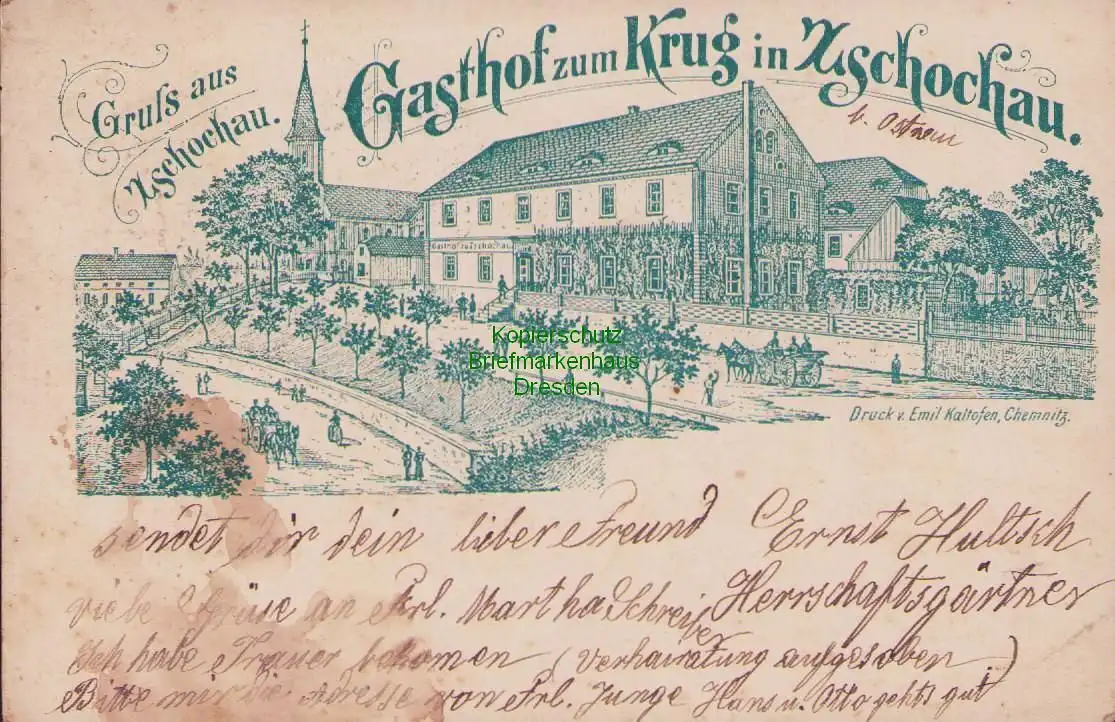 Gruſs aus
Zschochau.
Gasthof zum Krug in Zschochau.
b. Ostrau
Gasthof zu Zschochau
Kopierschutz
Briefmarkenhaus
Dresden
Druck v. Emil Kaltofen, Chemnitz.
sendet dir dein liber Freund Ernst Hultsch
Herrschaftsgärtner
viele Grüse an Frl. Martha Schreiber
Ich habe Trauer bekomen (Verhairatung aufgesoben)
Bitte mir die Adresse von Frl. Junge Hans u. Otto gehts gut